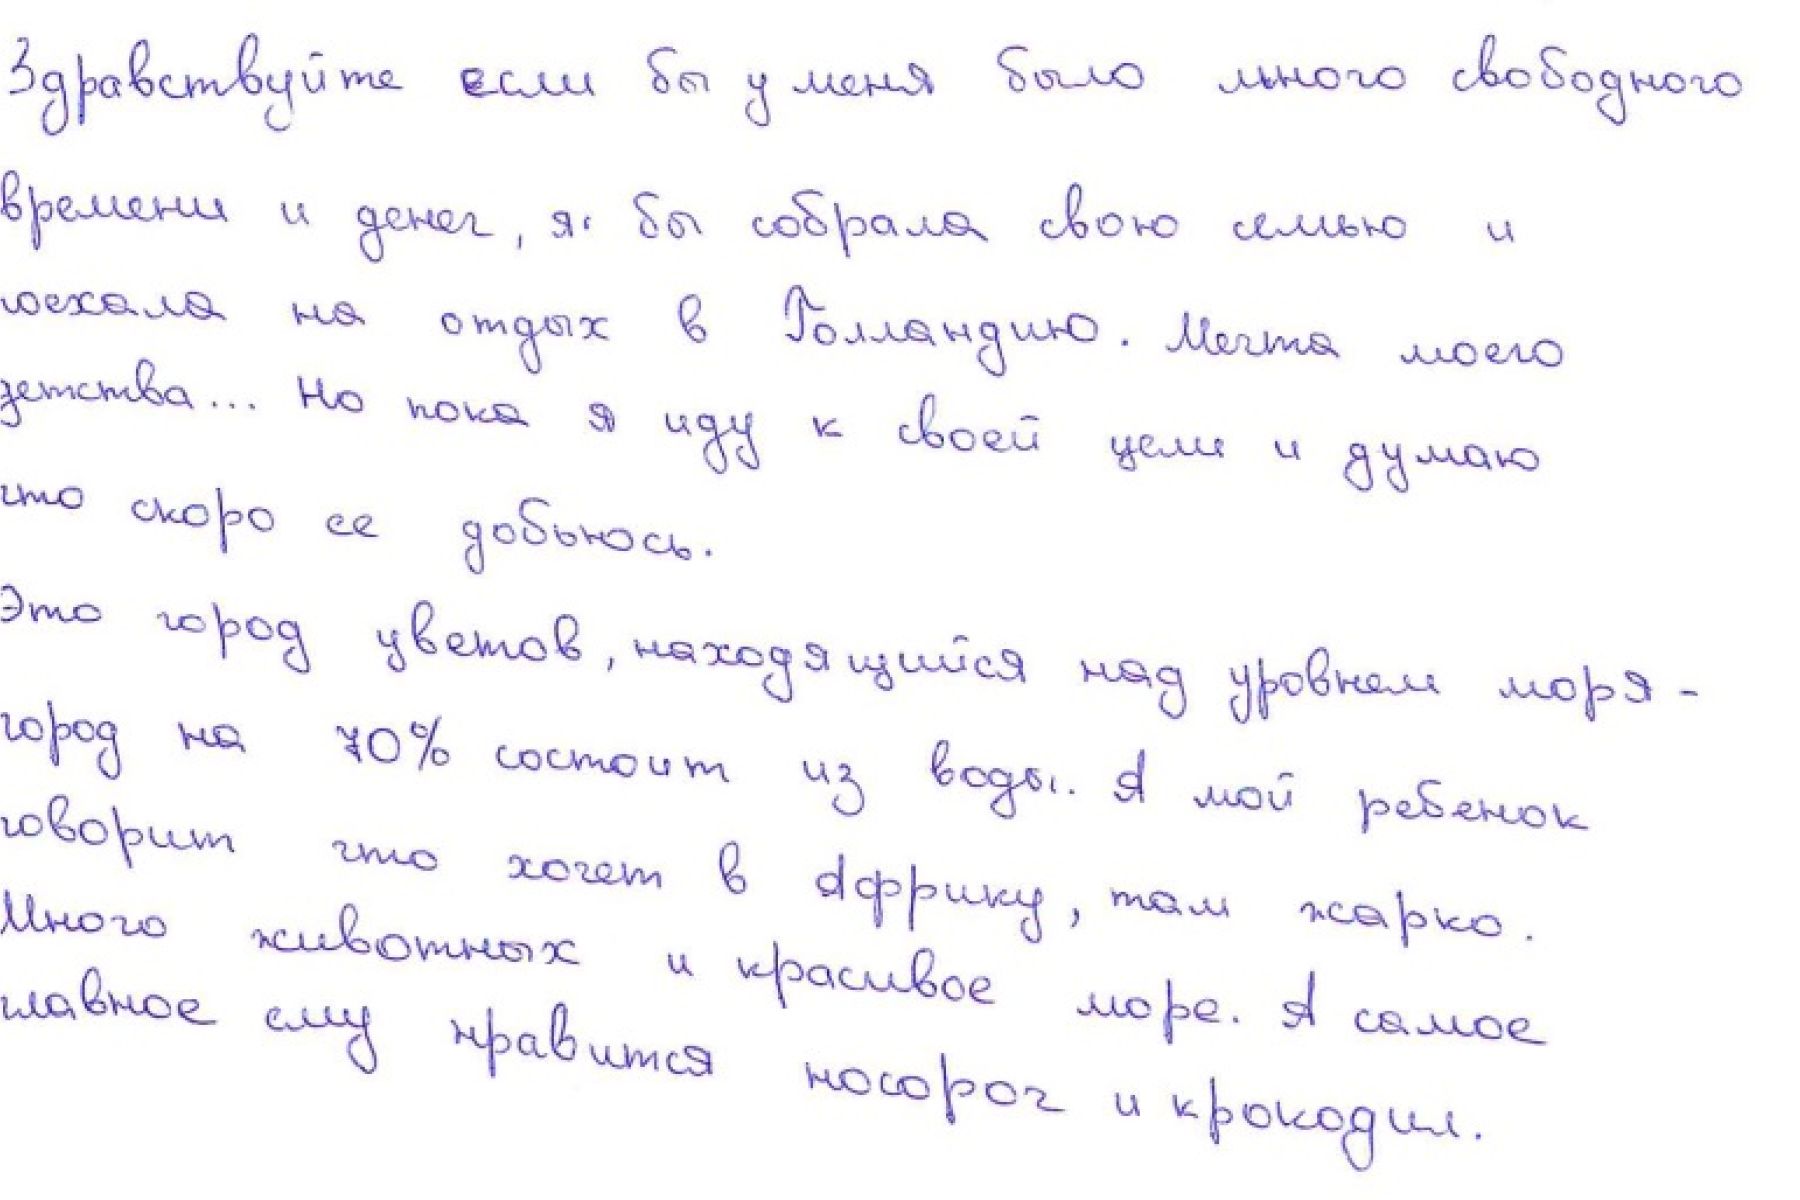 Здравствуйте если бы у меня было много свободного
времени и денег, я бы собрала свою семью и
поехала на отдых в Голландию. Мечта моего
детства... Но пока я иду к своей цели и думаю
что скоро ее добьюсь.
Это город цветов, находящийся над уровнем моря -
город на 70% состоит из воды. А мой ребенок
говорит что хочет в Африку, там жарко.
Много животных и красивое море. А самое
главное ему нравится носорог и крокодил.